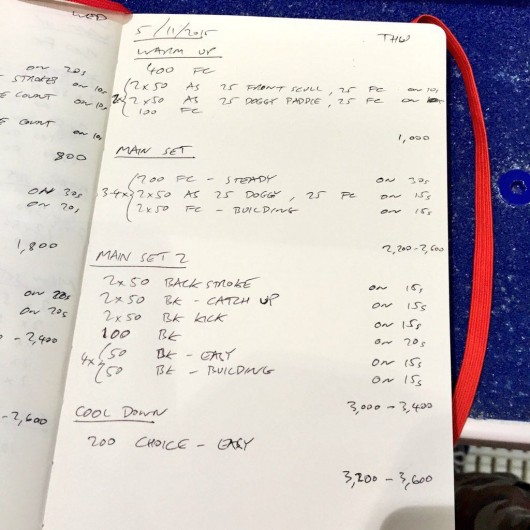 WED
ON 20s
STROKES ON 10s
COUNT ON 10s
COUNT ON 10s
800
ON 30s
ON 20s
1,800
ON 20s
ON 20s
- 2,400
- 2,600
5/11/2015 THU
WARM UP
400 FC
2x { 2x50 AS 25 FRONT SCULL, 25 FC ON 10s
2x50 AS 25 DOGGY PADDLE, 25 FC ON 10s
100 FC
1,000
MAIN SET
3-4x { 200 FC - STEADY ON 30s
2x50 AS 25 DOGGY, 25 FC ON 15s
2x50 FC - BUILDING ON 15s
2,200-2,600
MAIN SET 2
2x50 BACKSTROKE ON 15s
2x50 BK - CATCH UP ON 15s
2x50 BK KICK ON 15s
100 BK ON 20s
4x { 50 BK - EASY ON 15s
50 BK - BUILDING ON 15s
3,000-3,400
COOL DOWN
200 CHOICE - EASY
3,200-3,600